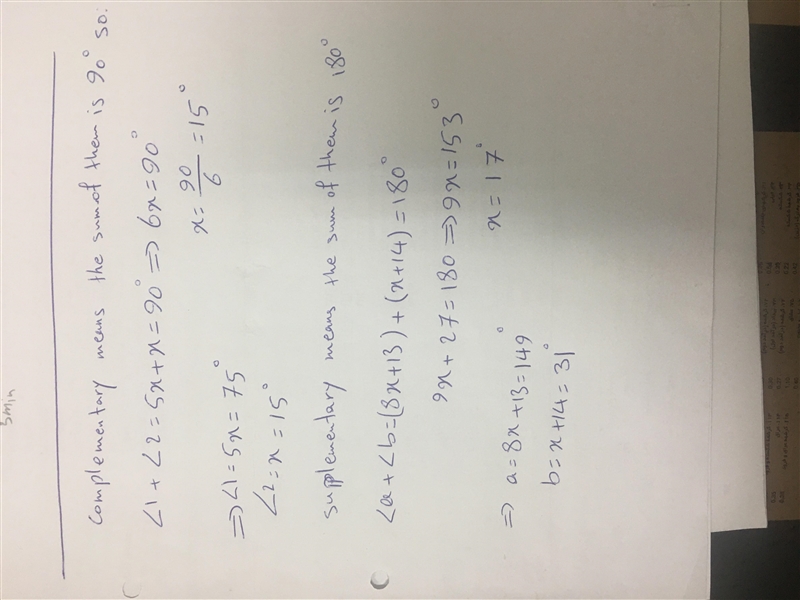 5min
complementary means the sum of them is 90° so:
∠1 + ∠2 = 5x + x = 90° ⇒ 6x = 90°
x = 90/6 = 15°
⇒ ∠1 = 5x = 75°
∠2 = x = 15°
supplementary means the sum of them is 180°
∠a + ∠b = (8x+13) + (x+14) = 180°
9x + 27 = 180 ⇒ 9x = 153°
x = 17°
⇒ a = 8x + 13 = 149°
b = x + 14 = 31°